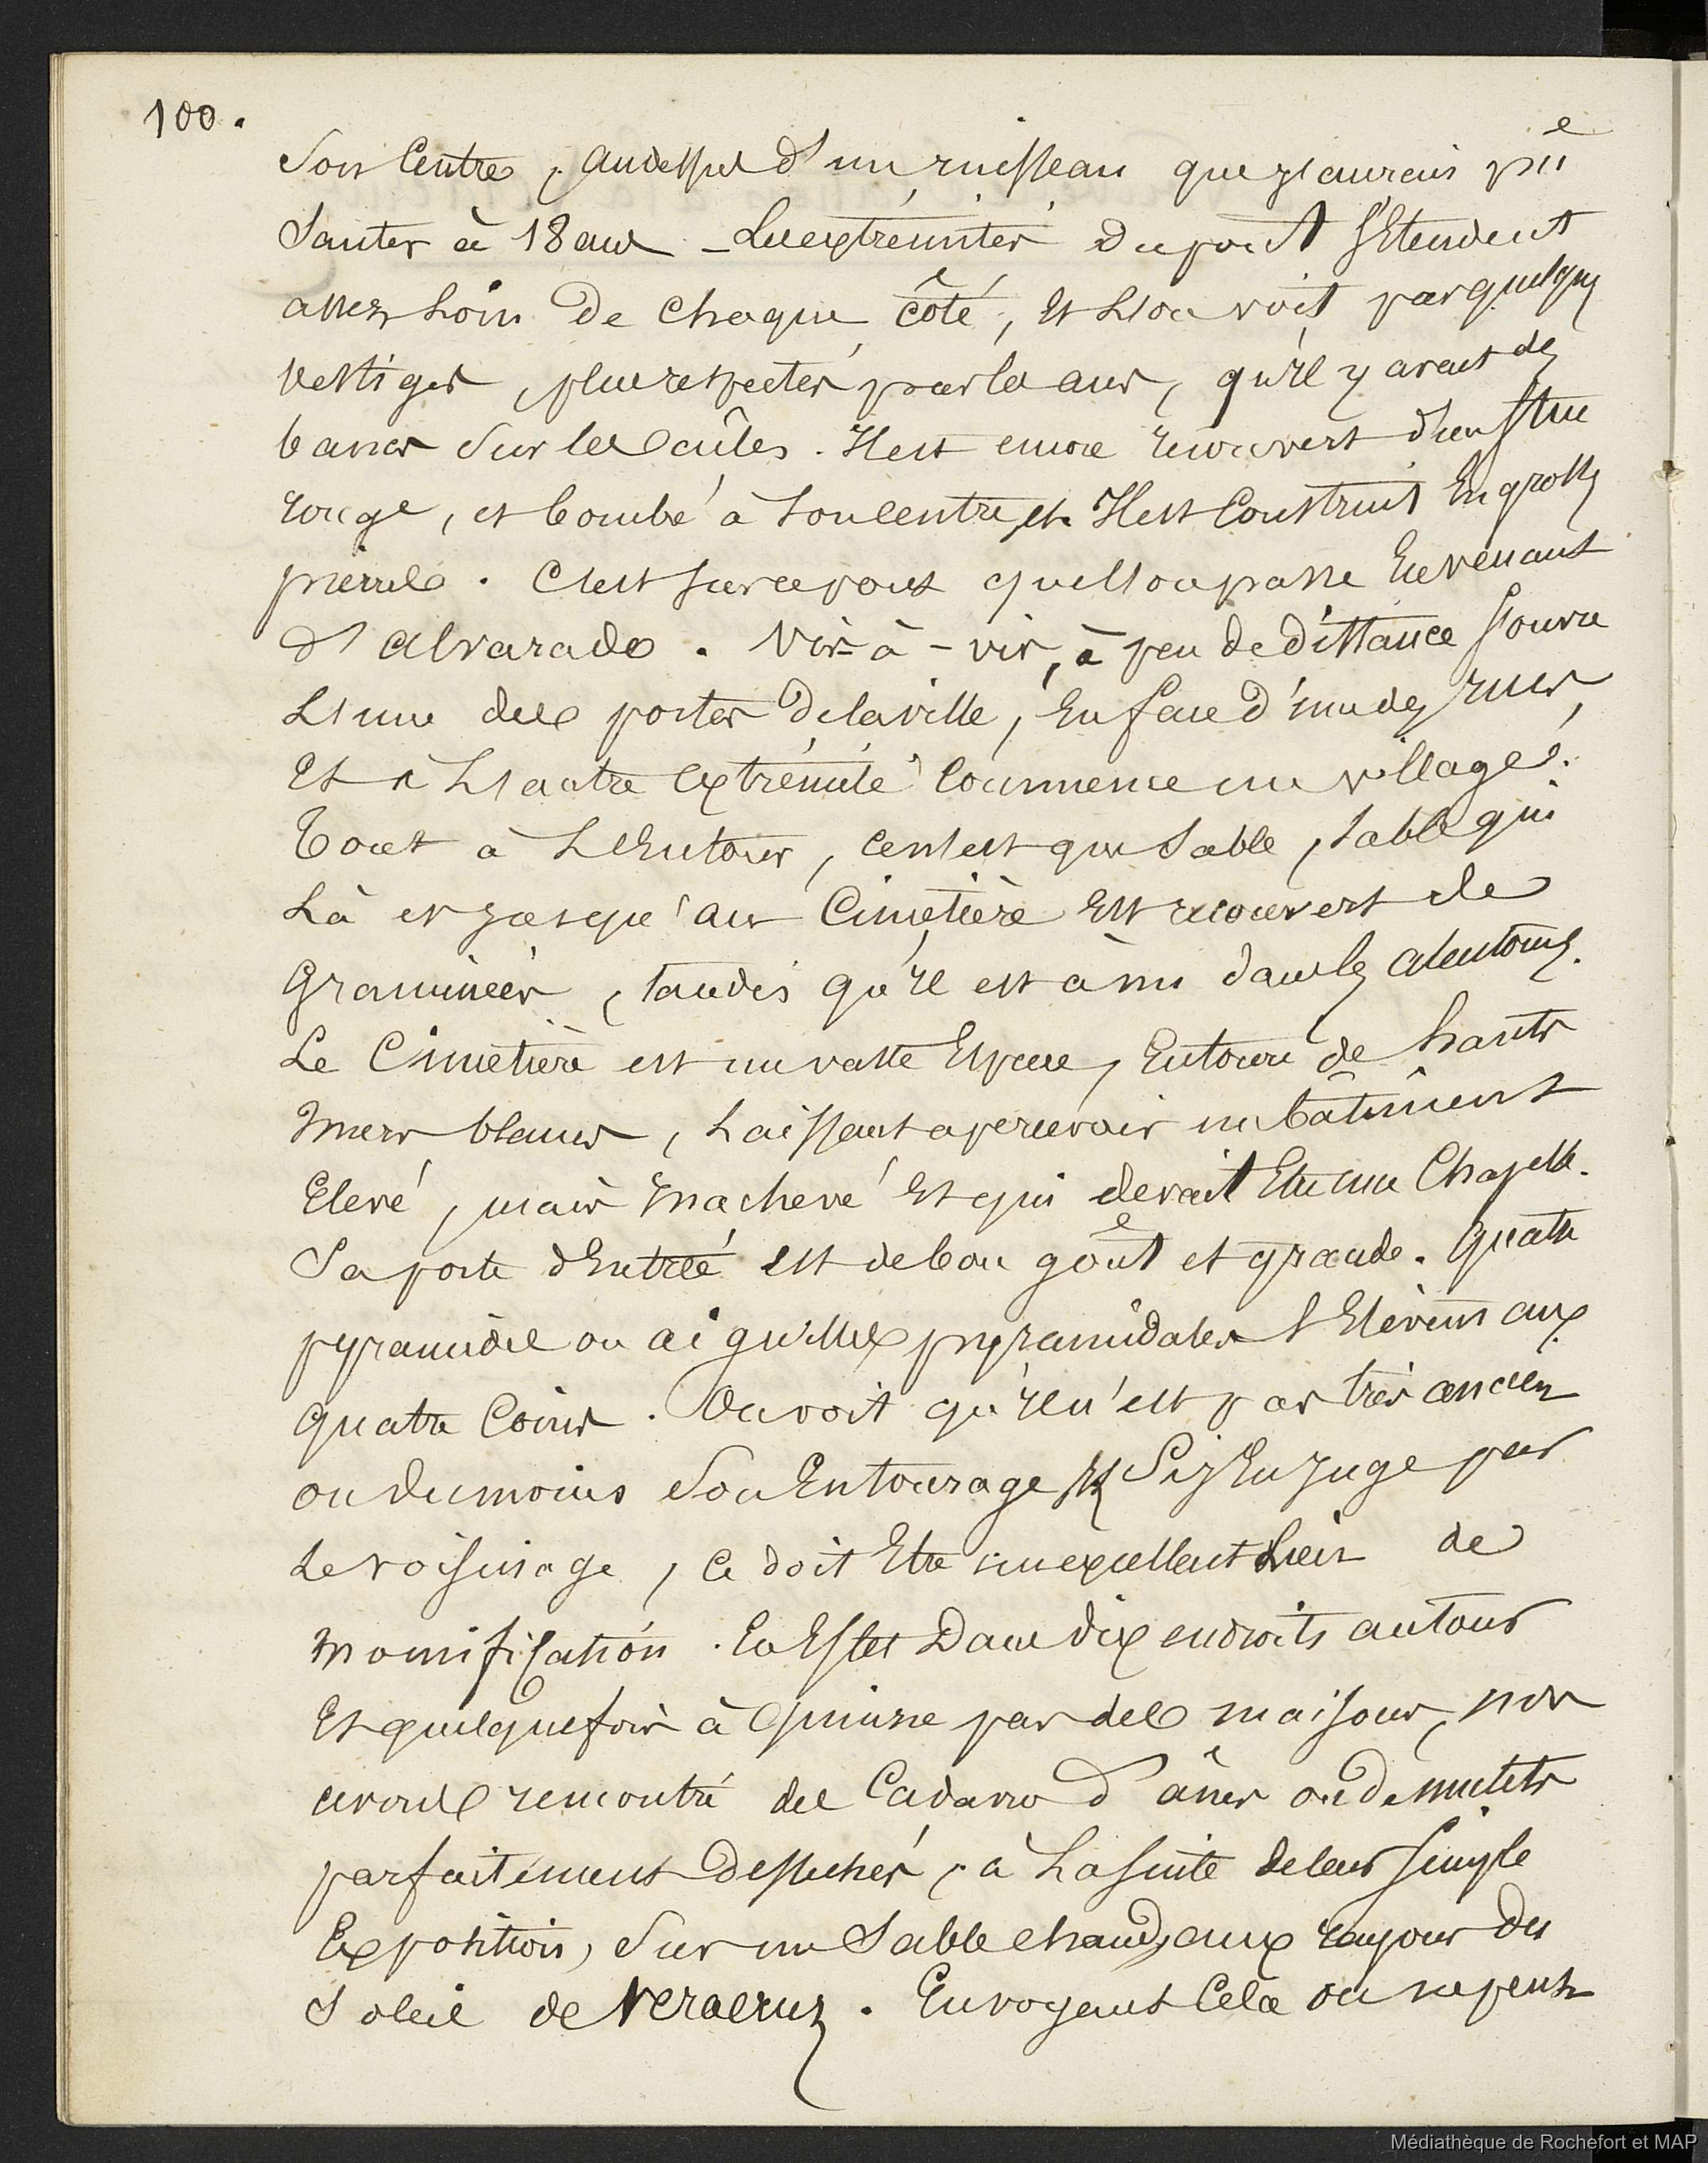 100.
Son Centre, audessus d'un ruisseau que j'aurais pû
Sauter à 18 ans - Les extrémités du pont s'Etendent
assez Loin De Chaque côté, Et L'on voit par quelques
vestiges, plus respectés par les ans, qu'il y avait des
bancs Sur les côtés. Il est encore recouvert d'un stuc
rouge, et bombé à Son Centre, et Il est Construit En grosses
pierres. C'est sur ce pont que l'on passe En venant
d'Alvarado. Vis-à-vis, à peu de distance s'ouvre
L'une des portes de la ville, En face d'une des rues,
Et à L'autre Extrémité Commence un village.
Tout à L'Entour, ce n'est que Sable, Sable qui
Là et jusqu'au Cimetière Est recouvert de
Graminées, tandis qu'il est à nu dans les alentours.
Le Cimetière est un vaste Espace, Entouré de hauts
Murs blancs, Laissant apercevoir un bâtiment
Elevé, mais Inachevé Et qui devait Etre une Chapelle.
Sa porte d'Entrée est de bon goût et grande. Quatre
pyramides ou aiguilles pyramidales s'Elèvent aux
quatre Coins. On voit qu'il n'est pas très ancien
ou du moins Son Entourage. Si j'En juge par
Le voisinage, Ce doit Etre un excellent Lieu de
Momification. En Effet Dans dix endroits autour
Et quelquefois à Quinze pas des maisons, nous
avons rencontré des Cadavres d'ânes ou de mulets
parfaitement Dessechés, à La suite de leur simple
Exposition, Sur un Sable chaud, aux rayons du
Soleil de Veracruz. En voyant Cela on ne peut
Médiathèque de Rochefort et MAP